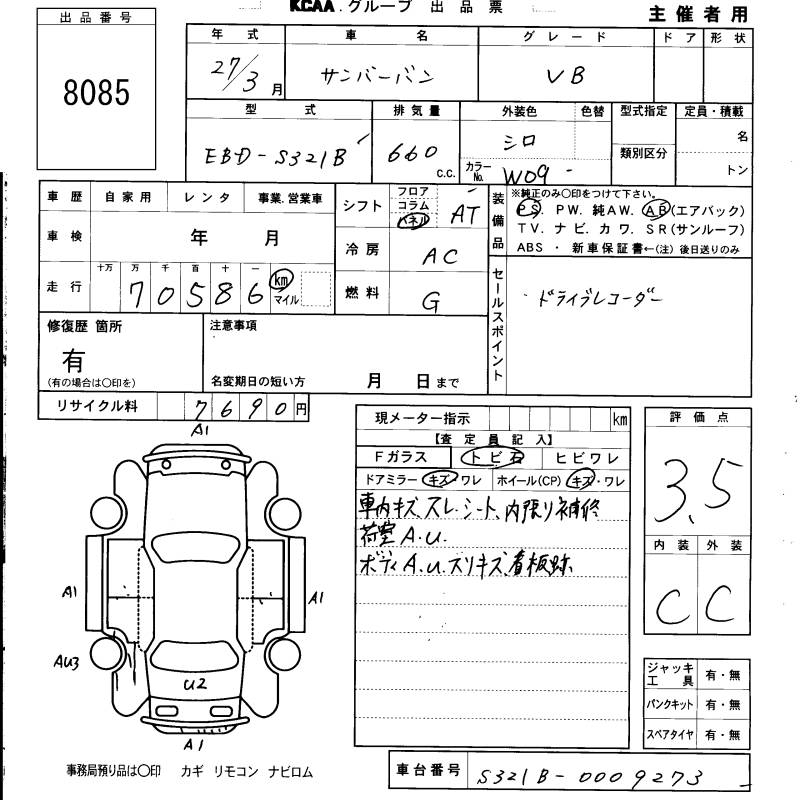 KCAA.グループ 出品票
主催者用
出品番号
8085
年式 車名 グレード ドア 形状
27/3月 サンバーバン VB
型式 排気量 外装色 色替 型式指定 定員・積載
EBD-S321B 660 C.C. シロ 類別区分 名
カラーNo. W09 トン
車歴 自家用 レンタ 事業.営業車
車検 年 月
走行 十万 万 千 百 十 一
70586 km マイル
シフト フロア コラム パネル AT
冷房 AC
燃料 G
装備品
※純正のみ〇印をつけて下さい。
PS. PW. 純AW. AB(エアバック)
TV. ナビ. カワ. SR(サンルーフ)
ABS ・ 新車保証書←(注) 後日送りのみ
セールスポイント
ドライブレコーダー
修復歴 箇所
有
(有の場合は〇印を)
注意事項
名変期日の短い方 月 日まで
リサイクル料 7690円
現メーター指示 km
【査定員記入】
Fガラス トビ石 ヒビワレ
ドアミラー キズ・ワレ ホイール(CP) キズ・ワレ
車内キズ、スレ.シート、内張り補修
荷室A.U.
ボディA.U.スリキズ、看板跡
評価点
3.5
内装 外装
C C
A1
A1
A1
AU3
U2
A1
ジャッキ工具 有・無
パンクキット 有・無
スペアタイヤ 有・無
事務局預り品は〇印 カギ リモコン ナビロム
車台番号 S321B-0009273